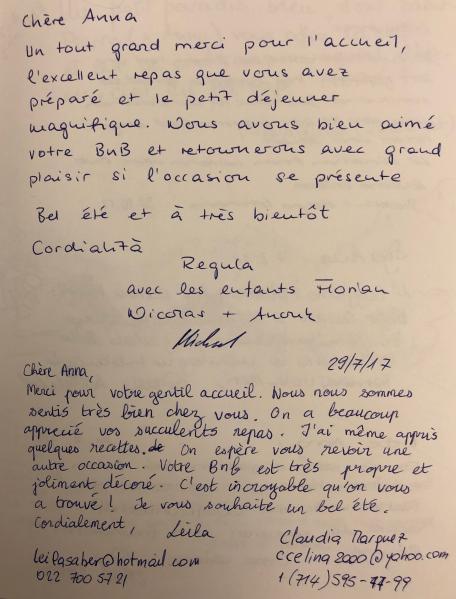 Chère Anna
Un tout grand merci pour l'accueil,
l'excellent repas que vous avez
préparé et le petit déjeuner
magnifique. Nous avons bien aimé
votre BnB et retournerons avec grand
plaisir si l'occasion se présente
Bel été et à très bientôt
Cordialità
Regula
avec les enfants Florian
Nicolas + Anouk
Michael
29/7/17
Chère Anna,
Merci pour votre gentil accueil. Nous nous sommes
sentis très bien chez vous. On a beaucoup
apprecié vos succulents repas. J'ai même appris
quelques recettes. de On espère vous revoir une
autre occasion. Votre BnB est très propre et
joliment décoré. C'est incroyable qu'on vous
a trouvé! Je vous souhaite un bel été.
Cordialement,
Leila
leilasaber@hotmail com
022 700 57 21
Claudia Marquez
ccelina2000@yahoo.com
1(714)595-77-99